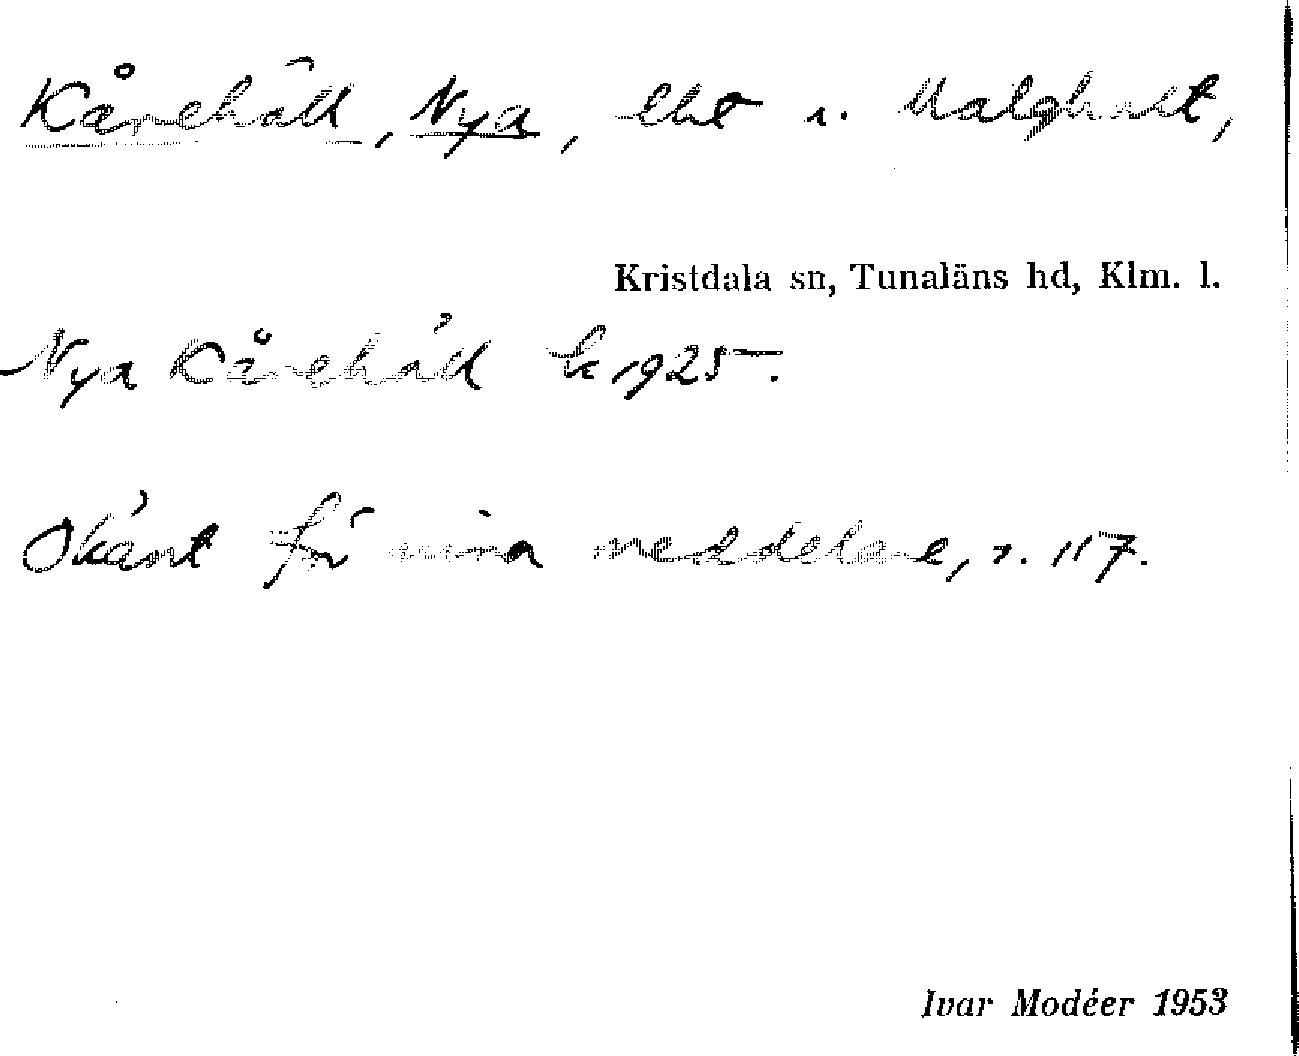 Kånehäll, Nya, lht s. Malghult,
Kristdala sn, Tunaläns hd, Klm. l.
Nya Kånehåll Ek 1925.
Okänt för mina meddelare, s. 117.
Ivar Modéer 1953